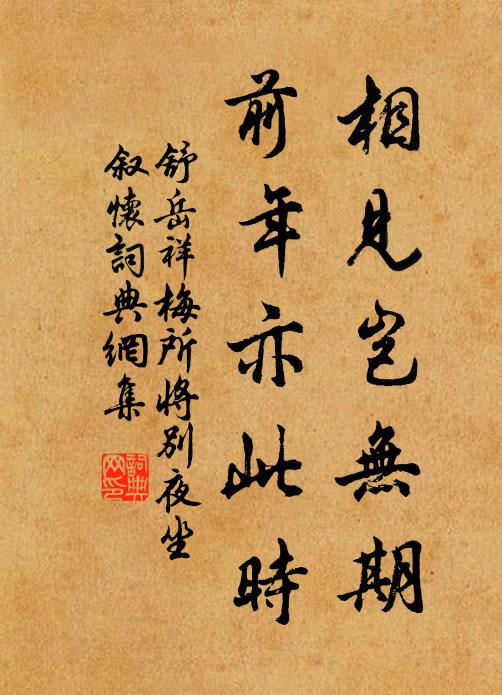 相見豈無期
前年亦此時
舒岳祥梅所將別夜坐
叙懷詞典網集
詞典
网印